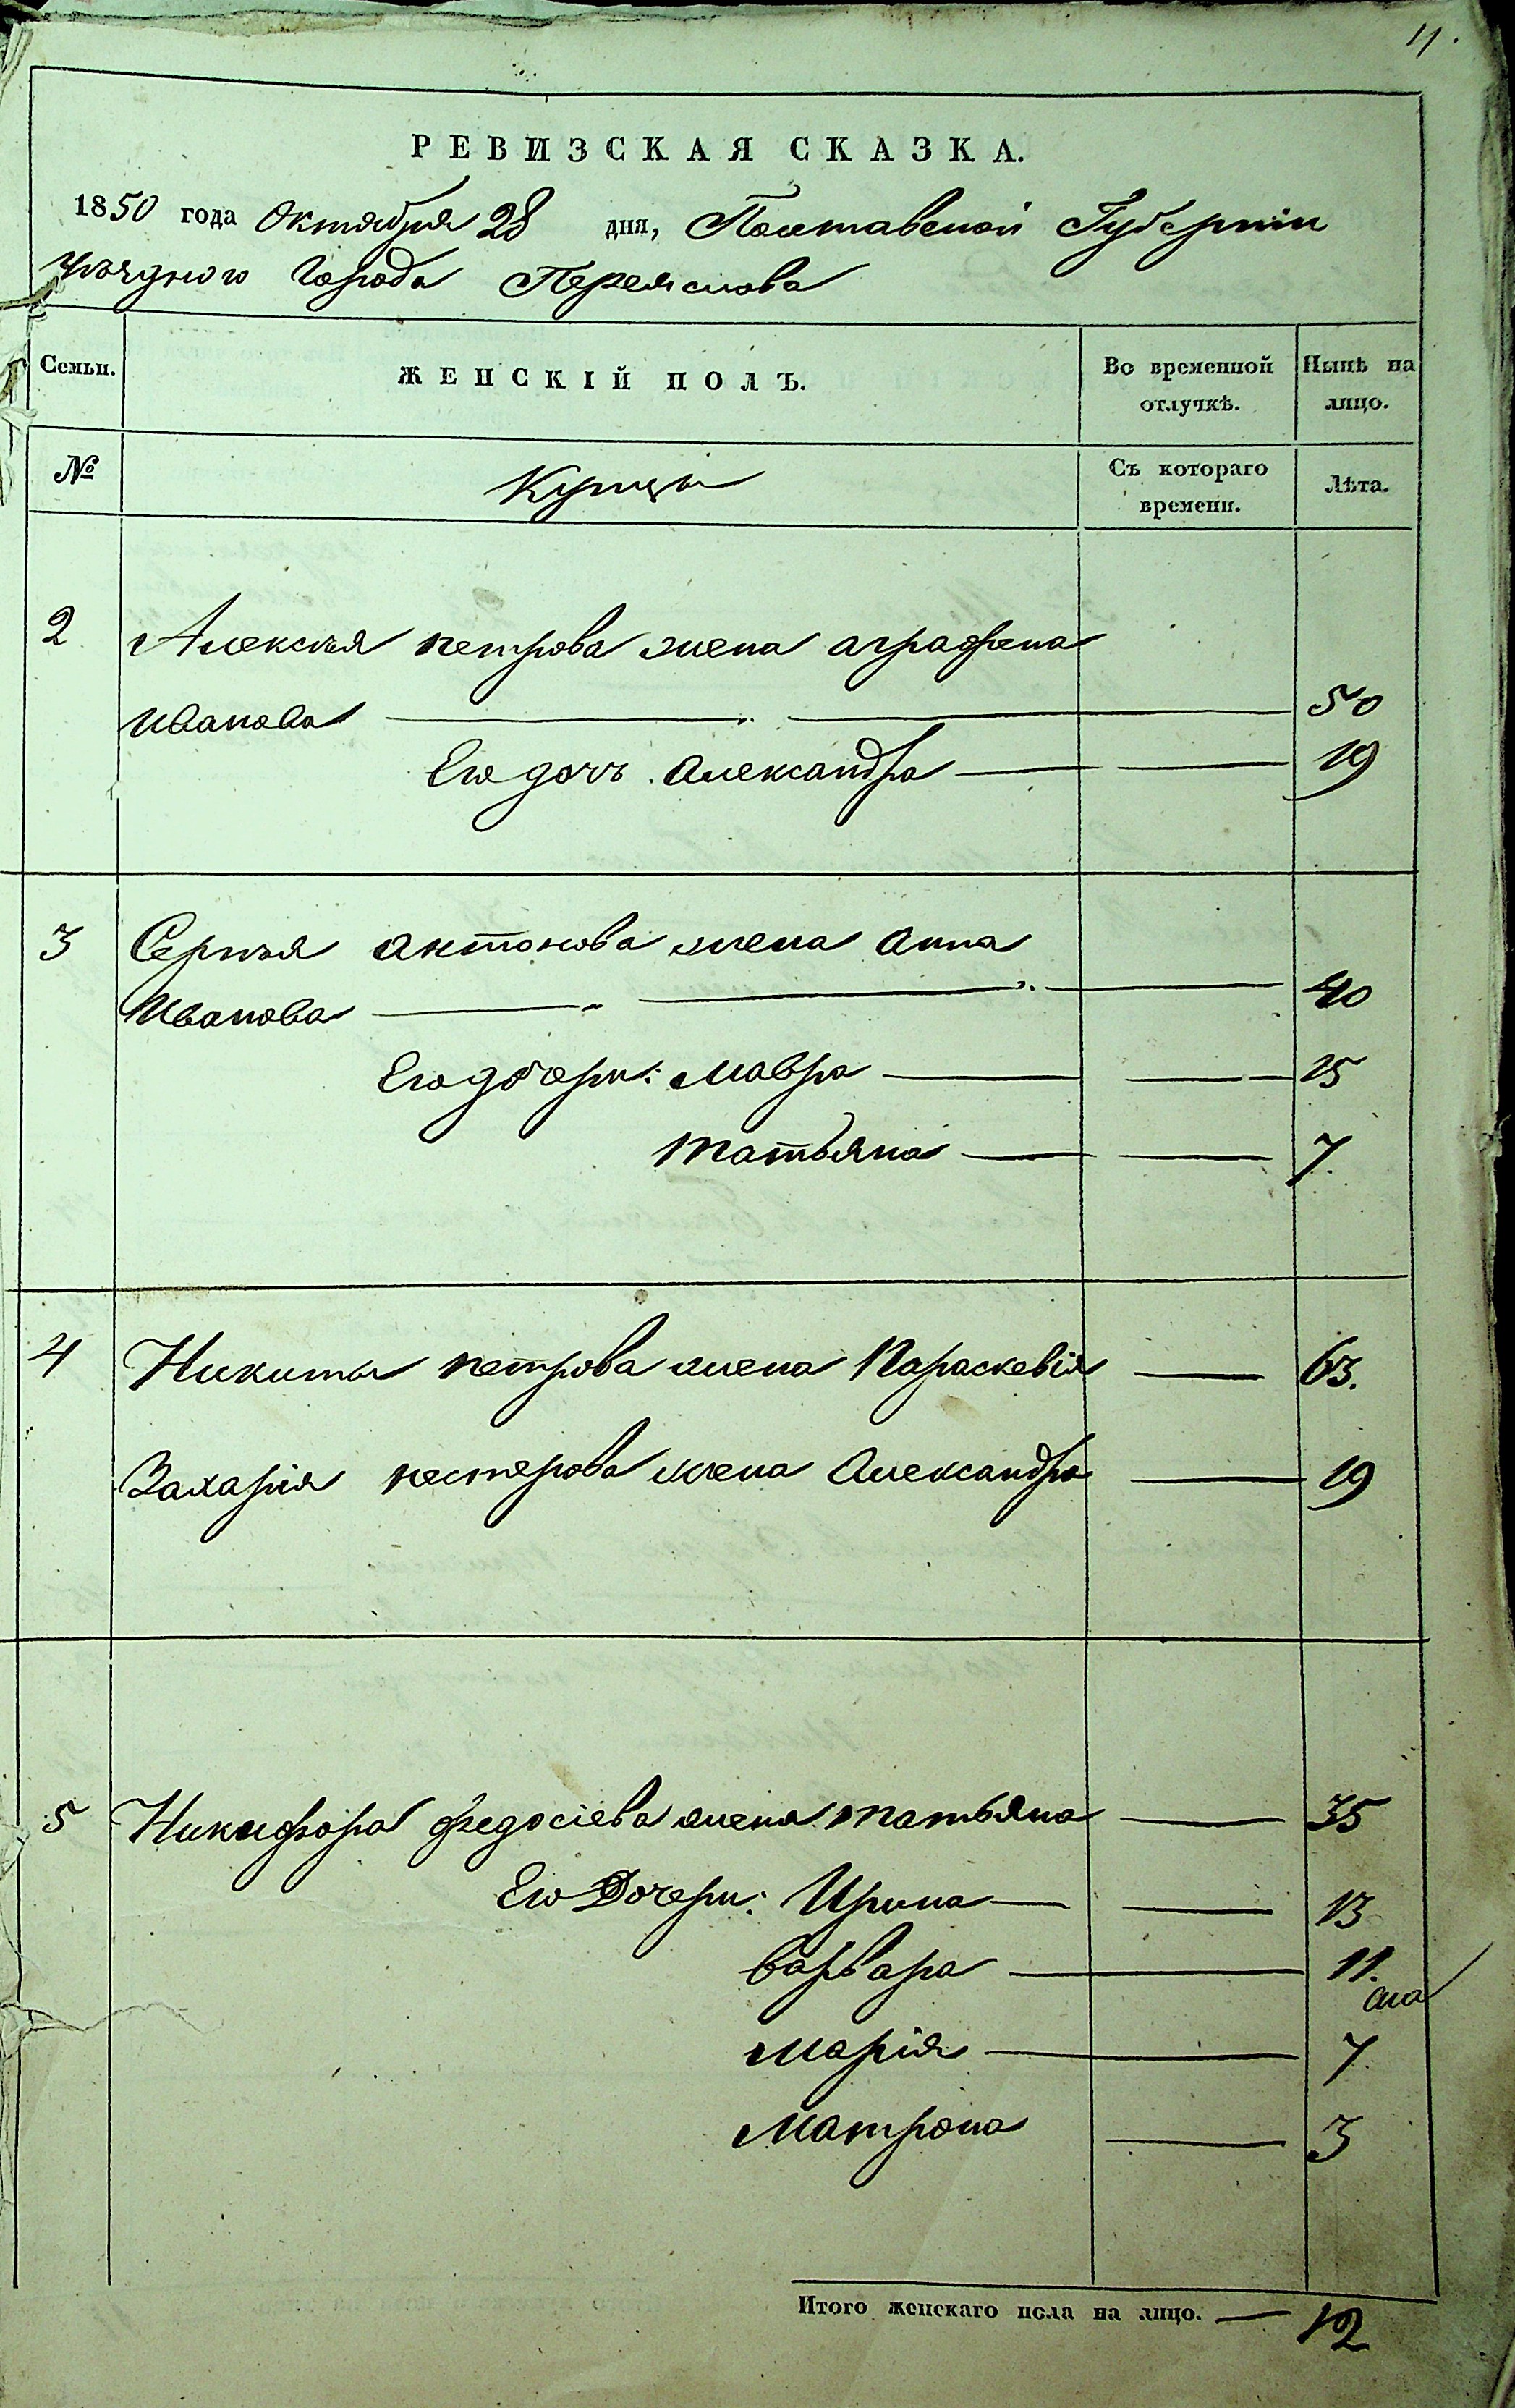 11.
РЕВИЗСКАЯ СКАЗКА.
1850 года Октября 28 дня, Полтавской Губернии
уѣзднаго Города Переяслова
Семьи. ЖЕНСКІЙ ПОЛЪ. Во временной отлучкѣ. Нынѣ на лицо.
№ Купцы Съ котораго времени. Лѣта.
2 Алексѣя петрова жена аграфена
иванова 50
Его дочь Александра 19
3 Сергѣя антонова жена анна
Иванова 40
Его дочери: Мавра 15
татьяна 7
4 Никиты петрова жена Параскевія 63.
Захарія нестерова жена Александра 19
5 Никифора федосіева жена татьяна 35
Его Дочери: Ирина 13
варвара 11.
Марія 7
Матрона 3
Итого женскаго пола на лицо. 12